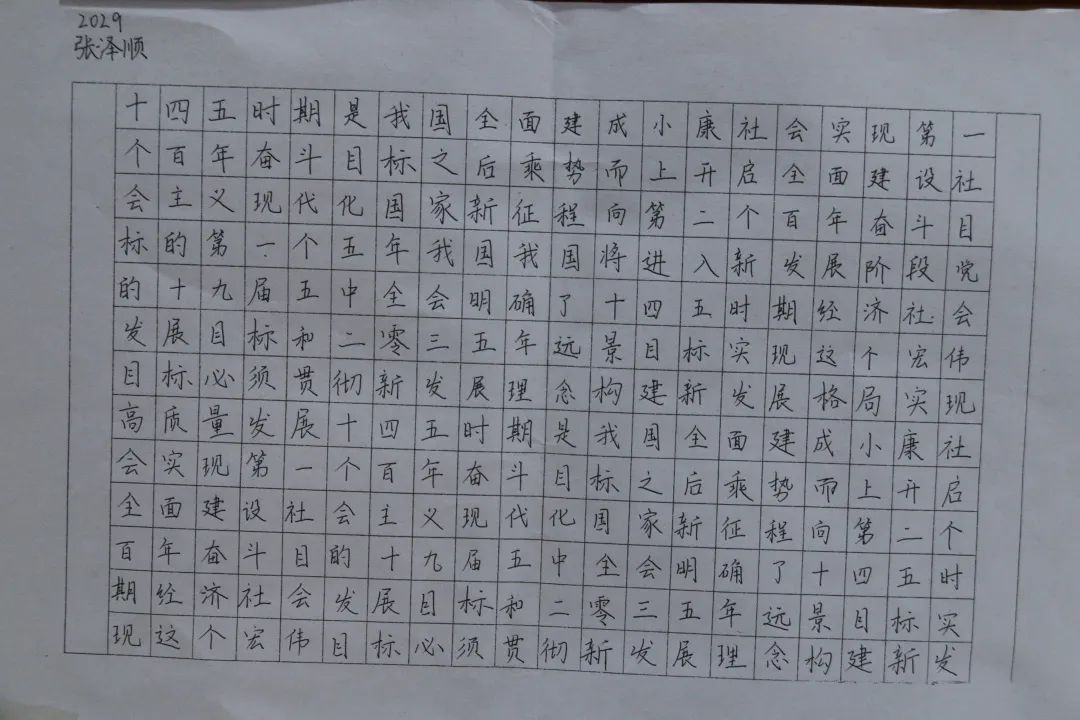 2029
张泽顺
十四五时期是我国全面建成小康社会实现第一
个百年奋斗目标之后乘势而上开启全面建设社
会主义现代化国家新征程向第二个百年奋斗目
标的第一个五年我国我国将进入新发展阶段党
的十九届五中全会明确了十四五时期经济社会
发展目标和二零三五年远景目标实现这个宏伟
目标必须贯彻新发展理念构建新发展格局实现
高质量发展十四五时期是我国全面建成小康社
会实现第一个百年奋斗目标之后乘势而上开启
全面建设社会主义现代化国家新征程向第二个
百年奋斗目的十九届五中全会明确了十四五时
期经济社会发展目标和二零三五年远景目标实
现这个宏伟目标必须贯彻新发展理念构建新发